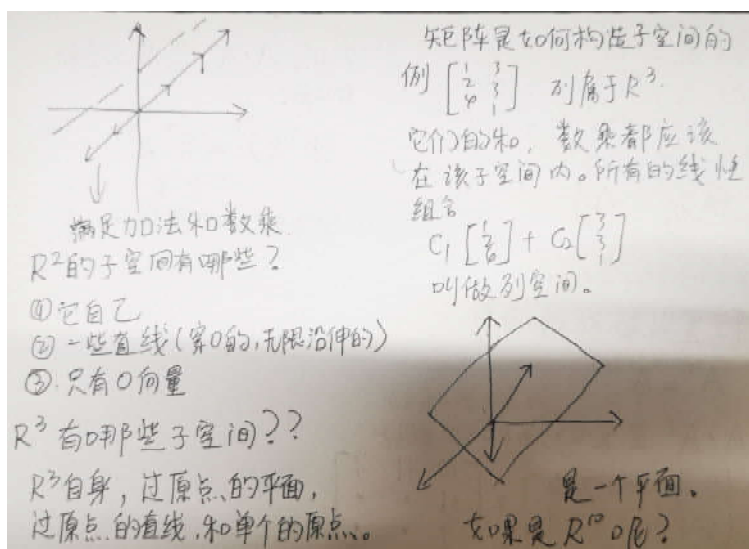 满足加法和数乘
R²的子空间有哪些？
①它自己
②一些直线（穿0的,无限沿伸的）
③只有0向量
R³有哪些子空间？？
R³自身，过原点的平面，
过原点的直线，和单个的原点。
矩阵是如何构造子空间的
例 [1 3
2 3
4 1] 列属于R³.
它们的和，数乘都应该
在该子空间内。所有的线性
组合
C₁ [1 2] + C₂ [3 3 1]
叫做列空间。
是一个平面。
如果是R¹⁰呢？